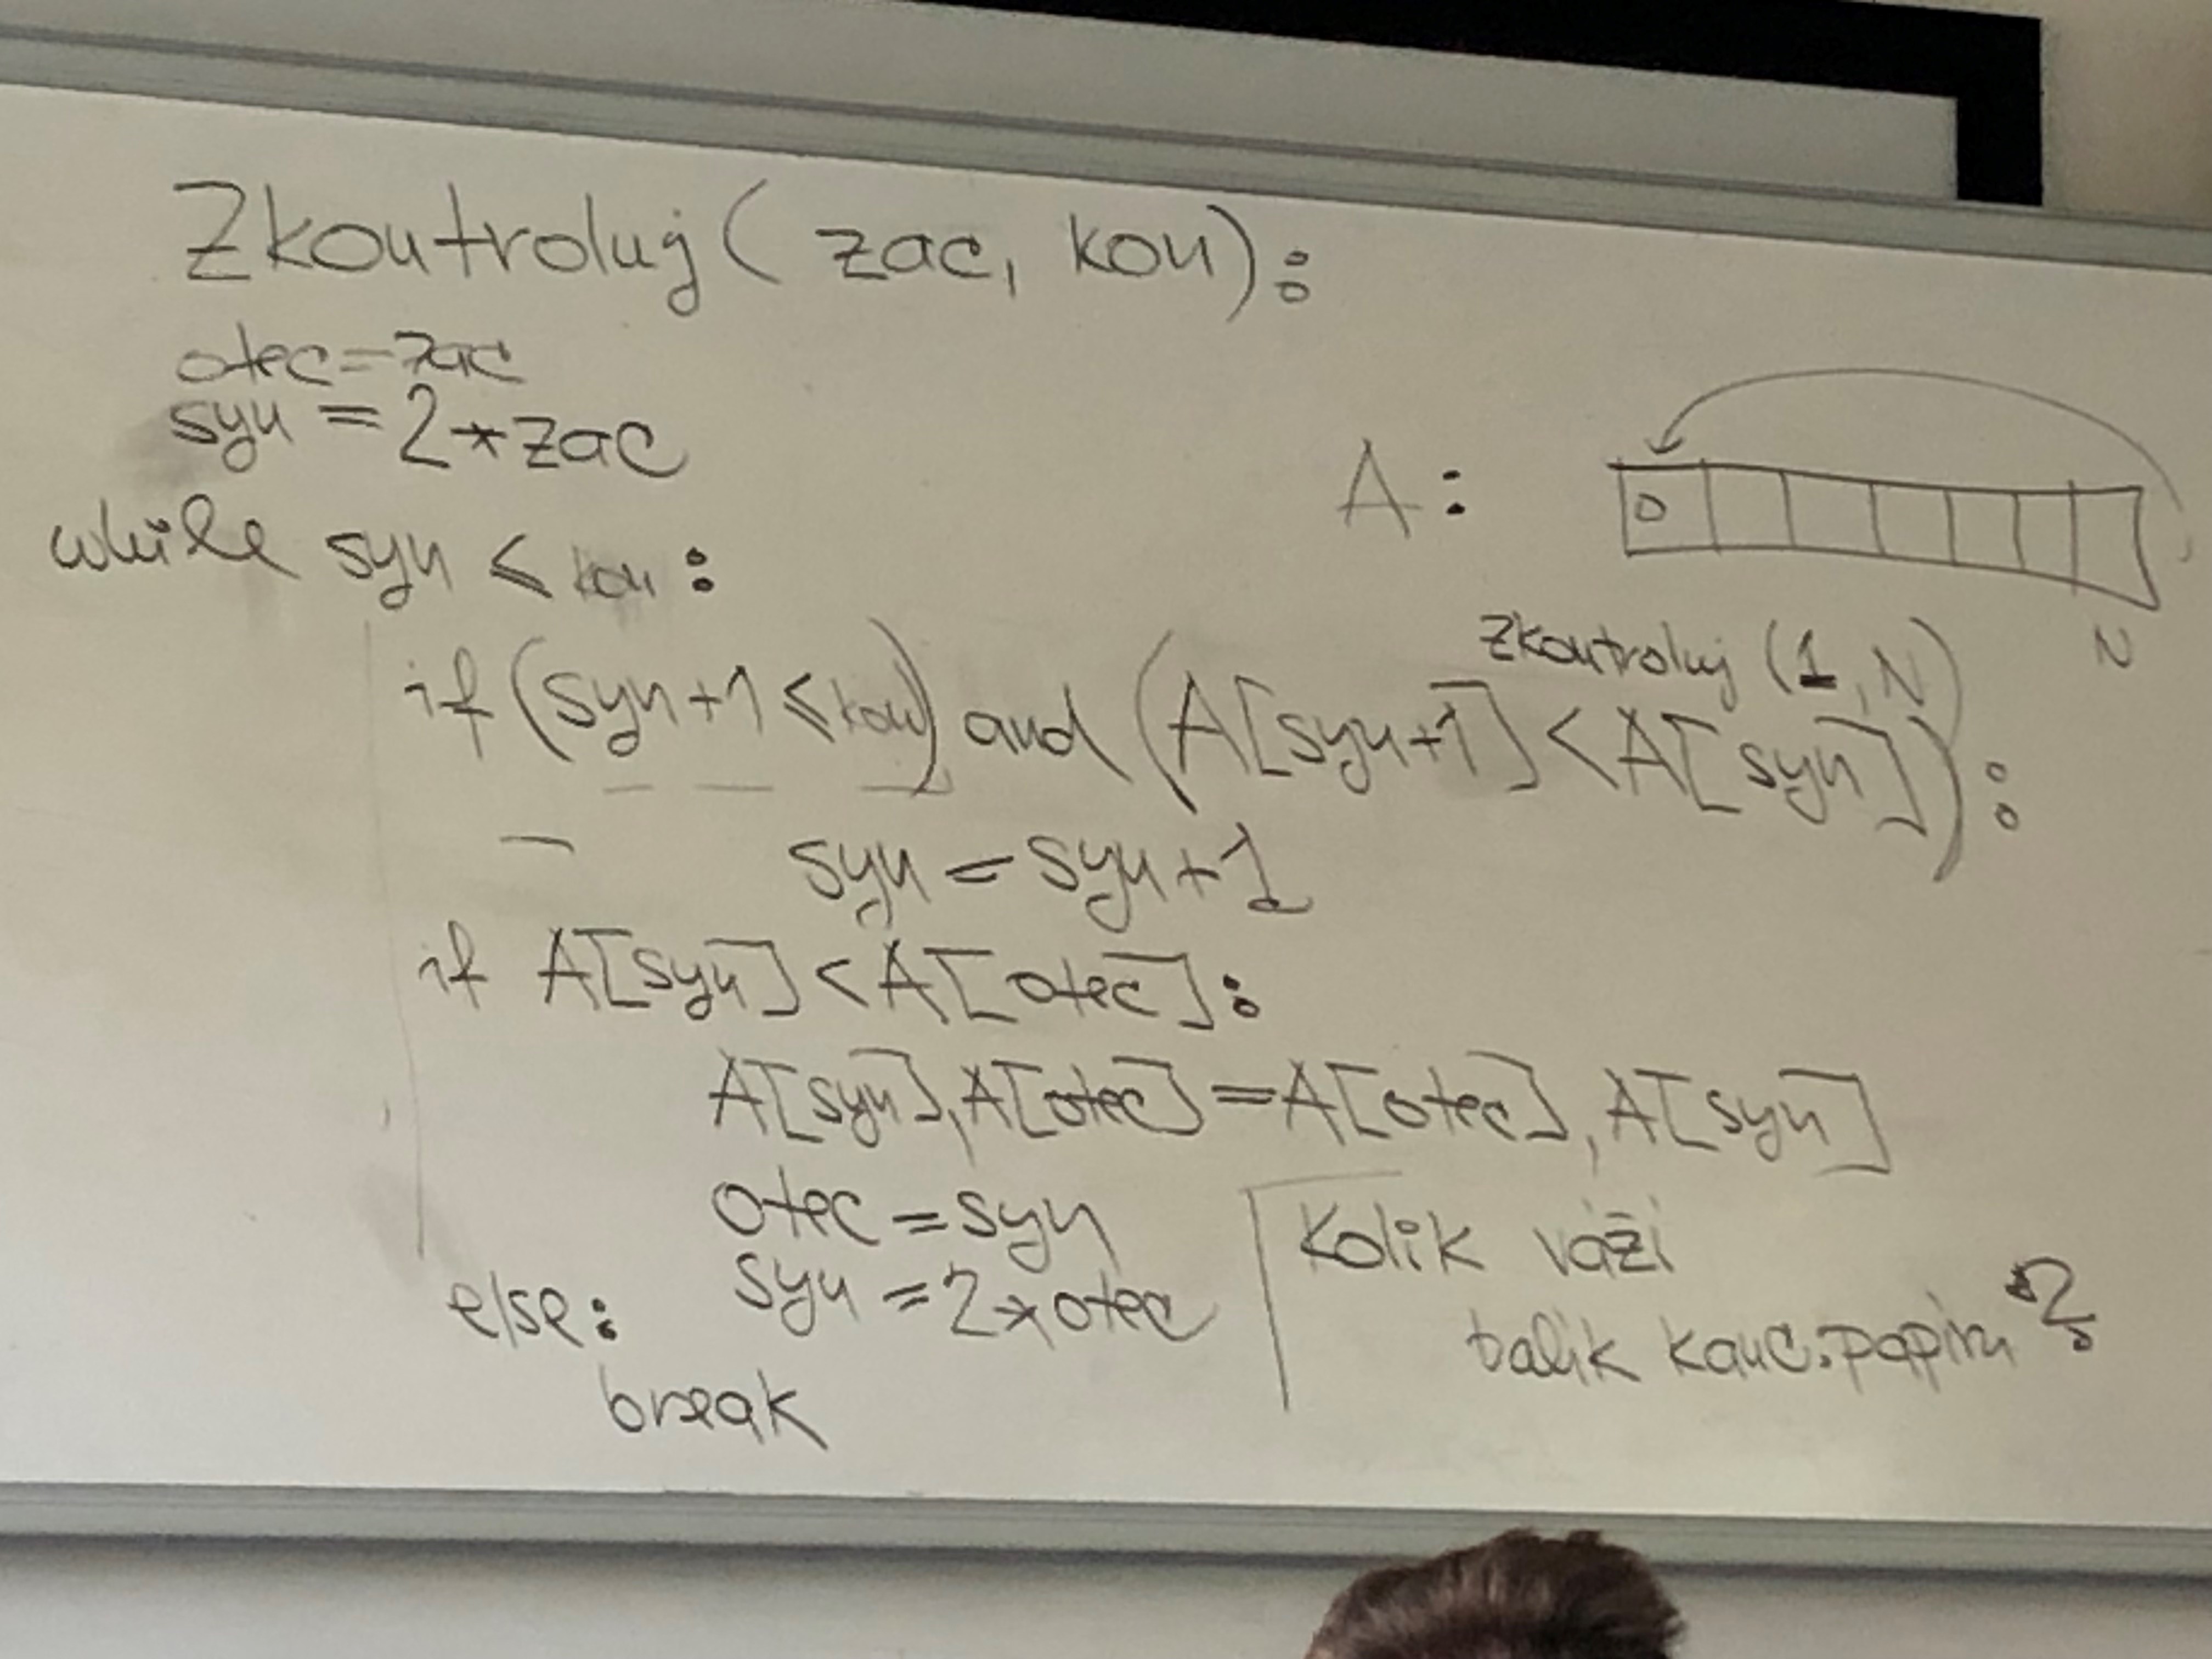 Zkontroluj( zac, kon):
otec=zac
syn = 2*zac
while syn ≤ kon:
A:
0
N
Zkontroluj (1, N)
if (syn+1 ≤ kon) and (A[syn+1] < A[syn]):
syn = syn+1
if A[syn] < A[otec]:
A[syn], A[otec] = A[otec], A[syn]
otec = syn
syn = 2*otec
else:
break
Kolik váží
balík kanc. papíru ?